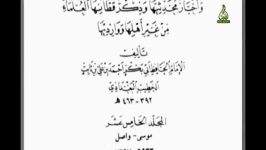 وَأَخْبَارُ مُحَدِّثِيهَا وَذِكْرُ قُطَّانِهَا العُلَمَاءِ
مِنْ غَيْرِ أَهْلِهَا وَوَارِدِيهَا
تَأليف
الإِمَامِ الحَافِظِ أَبِي بَكْرٍ أَحْمَدَ بْنِ عَلِيِّ بْنِ ثَابِتٍ
الخَطِيبِ البَغْدَادِيِّ
٣٩٢ - ٤٦٣ هـ
المجلد الخامس عشر
موسى - واصل